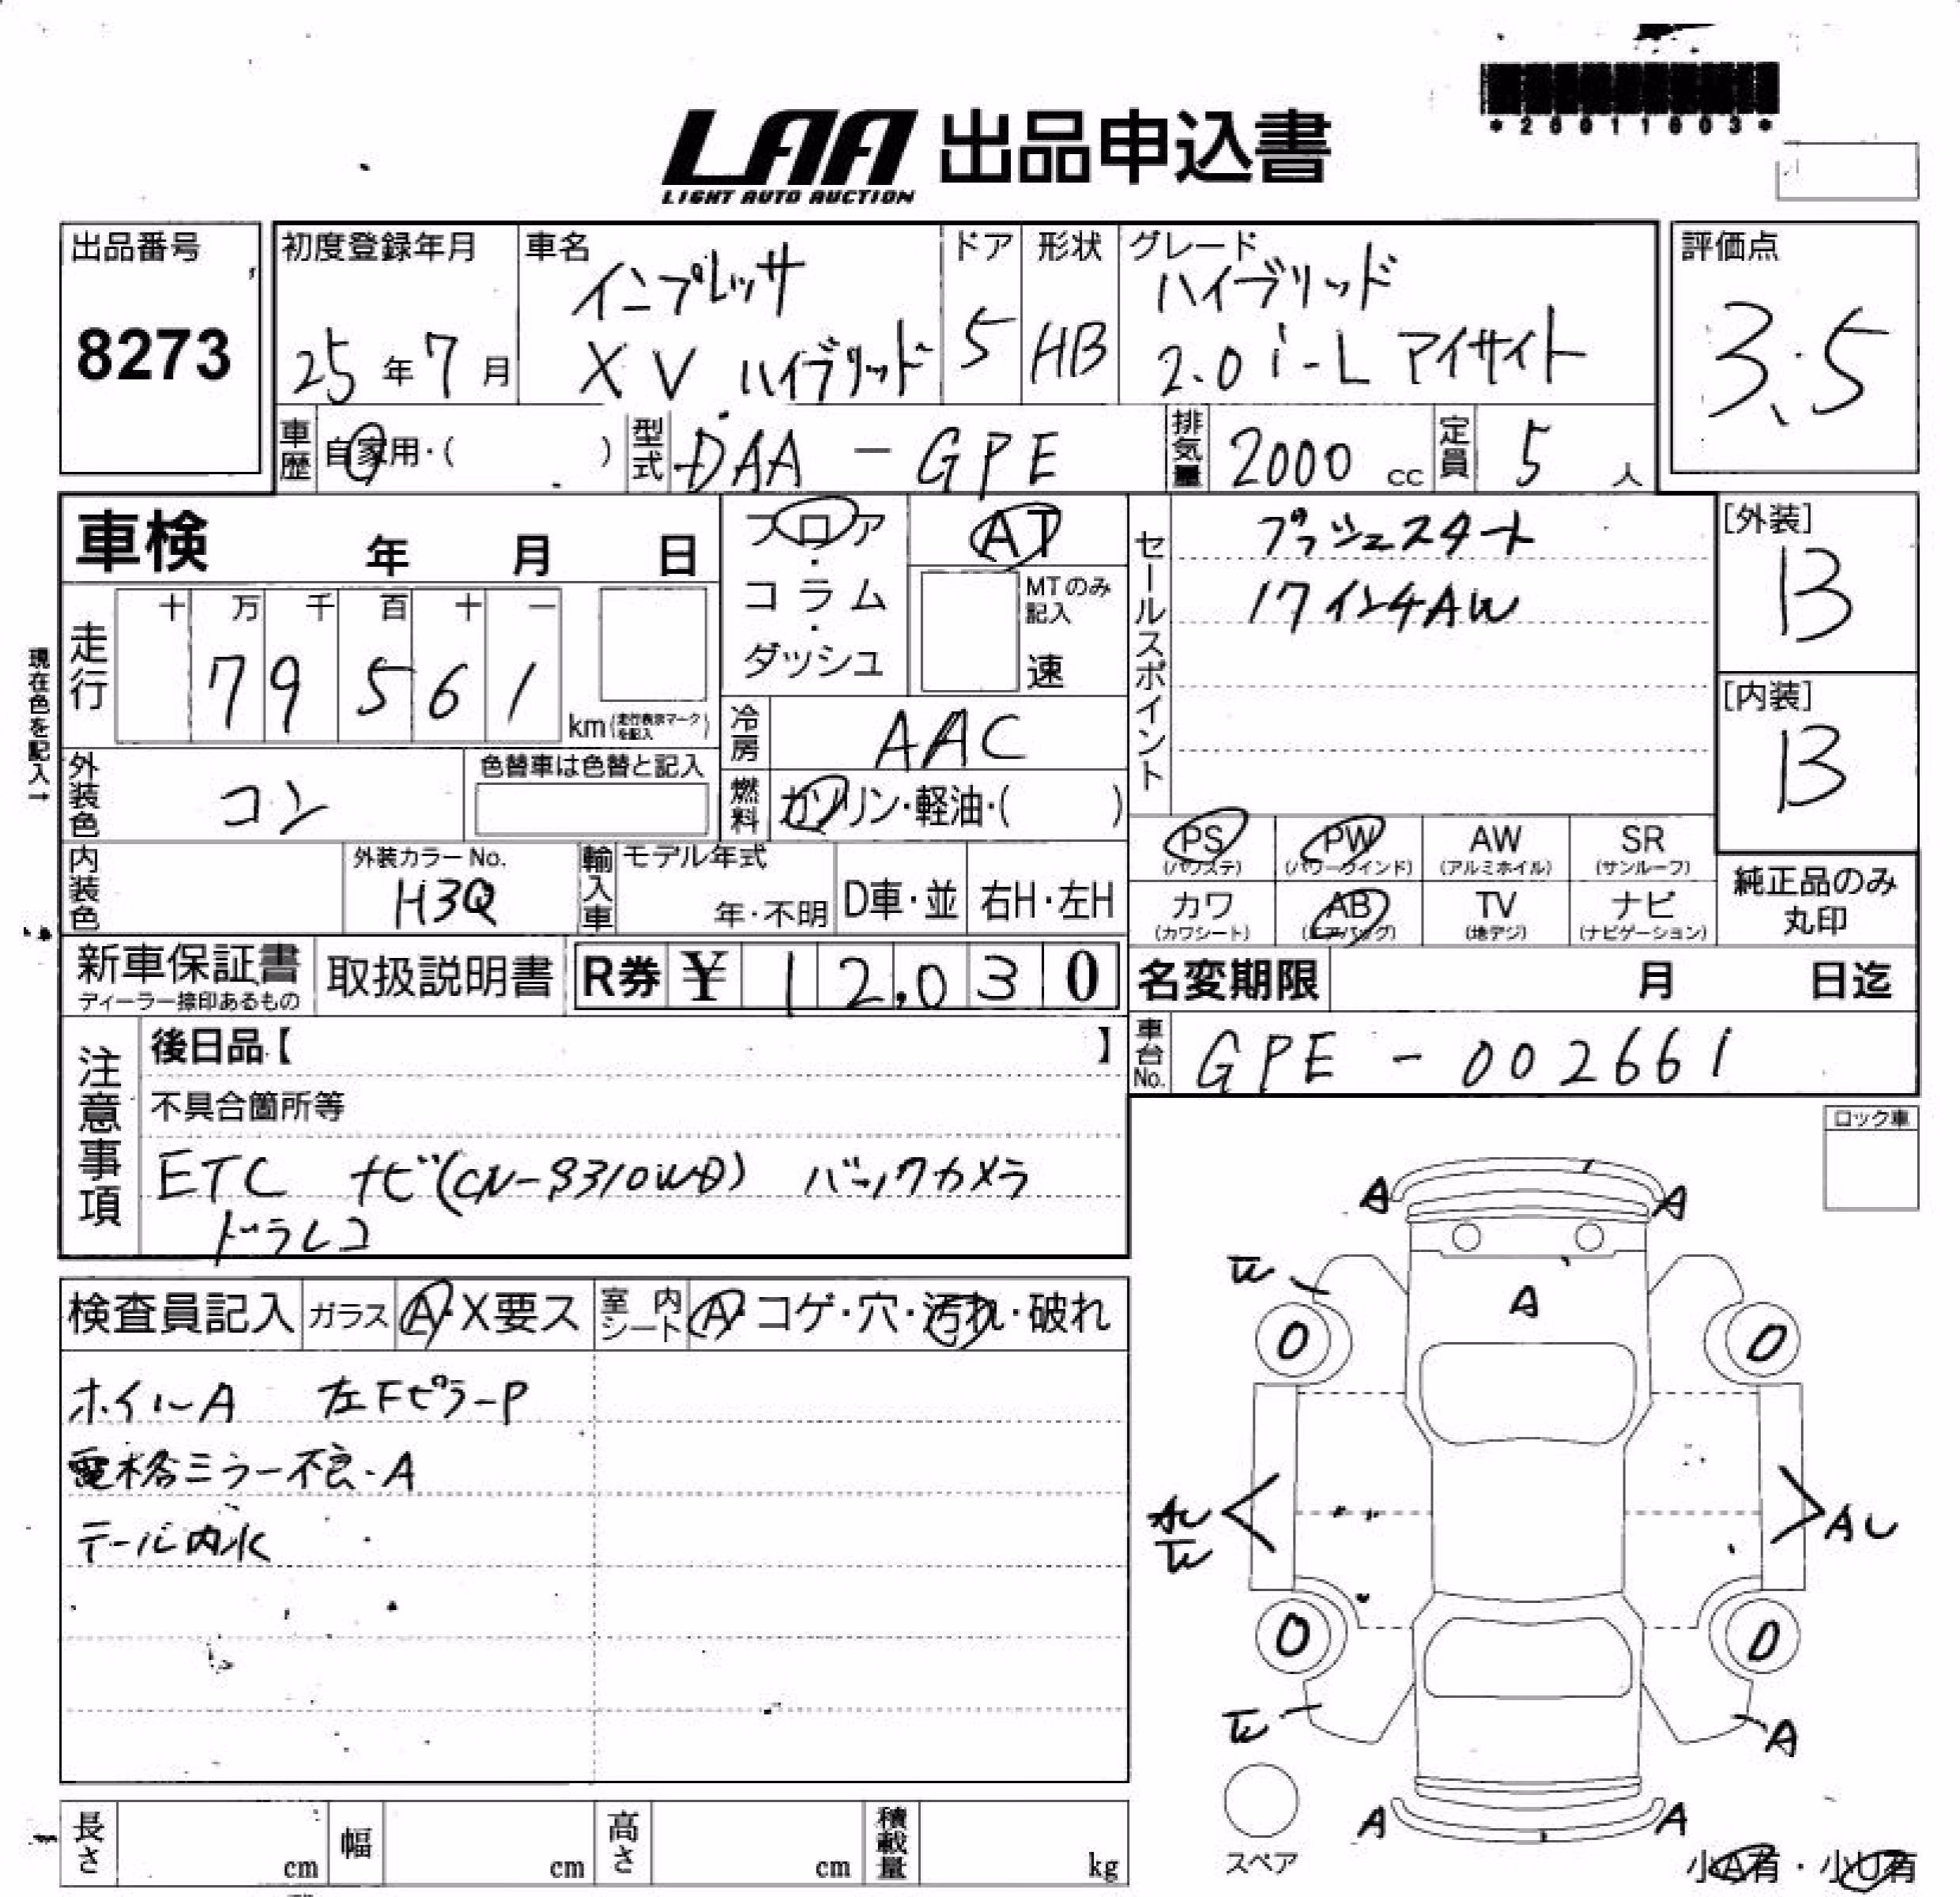 *25011603*
LAA 出品申込書
LIGHT AUTO AUCTION
出品番号
8273
初度登録年月
25年7月
車名
インプレッサ
XV ハイブリッド
ドア
5
形状
HB
グレード
ハイブリッド
2.0i-L アイサイト
評価点
3.5
車歴 自家用・( )
型式 DAA-GPE
排気量 2000cc
定員 5人
車検 年 月 日
フロア・コラム・ダッシュ
AT
MTのみ記入
速
セールスポイント
プッシュスタート
17インチAW
[外装]
B
[内装]
B
現在色を記入→
走行
十 万 千 百 十 一
79561
km(走行表示マークを記入)
冷房 AAC
外装色 コン
色替車は色替と記入
燃料 ガソリン・軽油・( )
PS (パワステ)
PW (パワーウインド)
AW (アルミホイル)
SR (サンルーフ)
カワ (カワシート)
AB (エアバッグ)
TV (地デジ)
ナビ (ナビゲーション)
純正品のみ丸印
内装色
外装カラーNo.
H3Q
輸入車 モデル年式
年・不明
D車・並
右H・左H
新車保証書
ディーラー捺印あるもの
取扱説明書
R券 ¥ 12,030
名変期限 月 日迄
注意事項
後日品【 】
車台No. GPE-002661
不具合箇所等
ETC ナビ(CN-S310WD) バックカメラ
ドラレコ
ロック車
検査員記入
ガラス A・X要ス
室内シート A・コゲ・穴・汚れ・破れ
ホイルA 左FピラーP
電格ミラー不良・A
テール内水
A A
A
0 0
AU
0 0
A
A A
スペア
小A有・小U有
長さ cm
幅 cm
高さ cm
積載量 kg